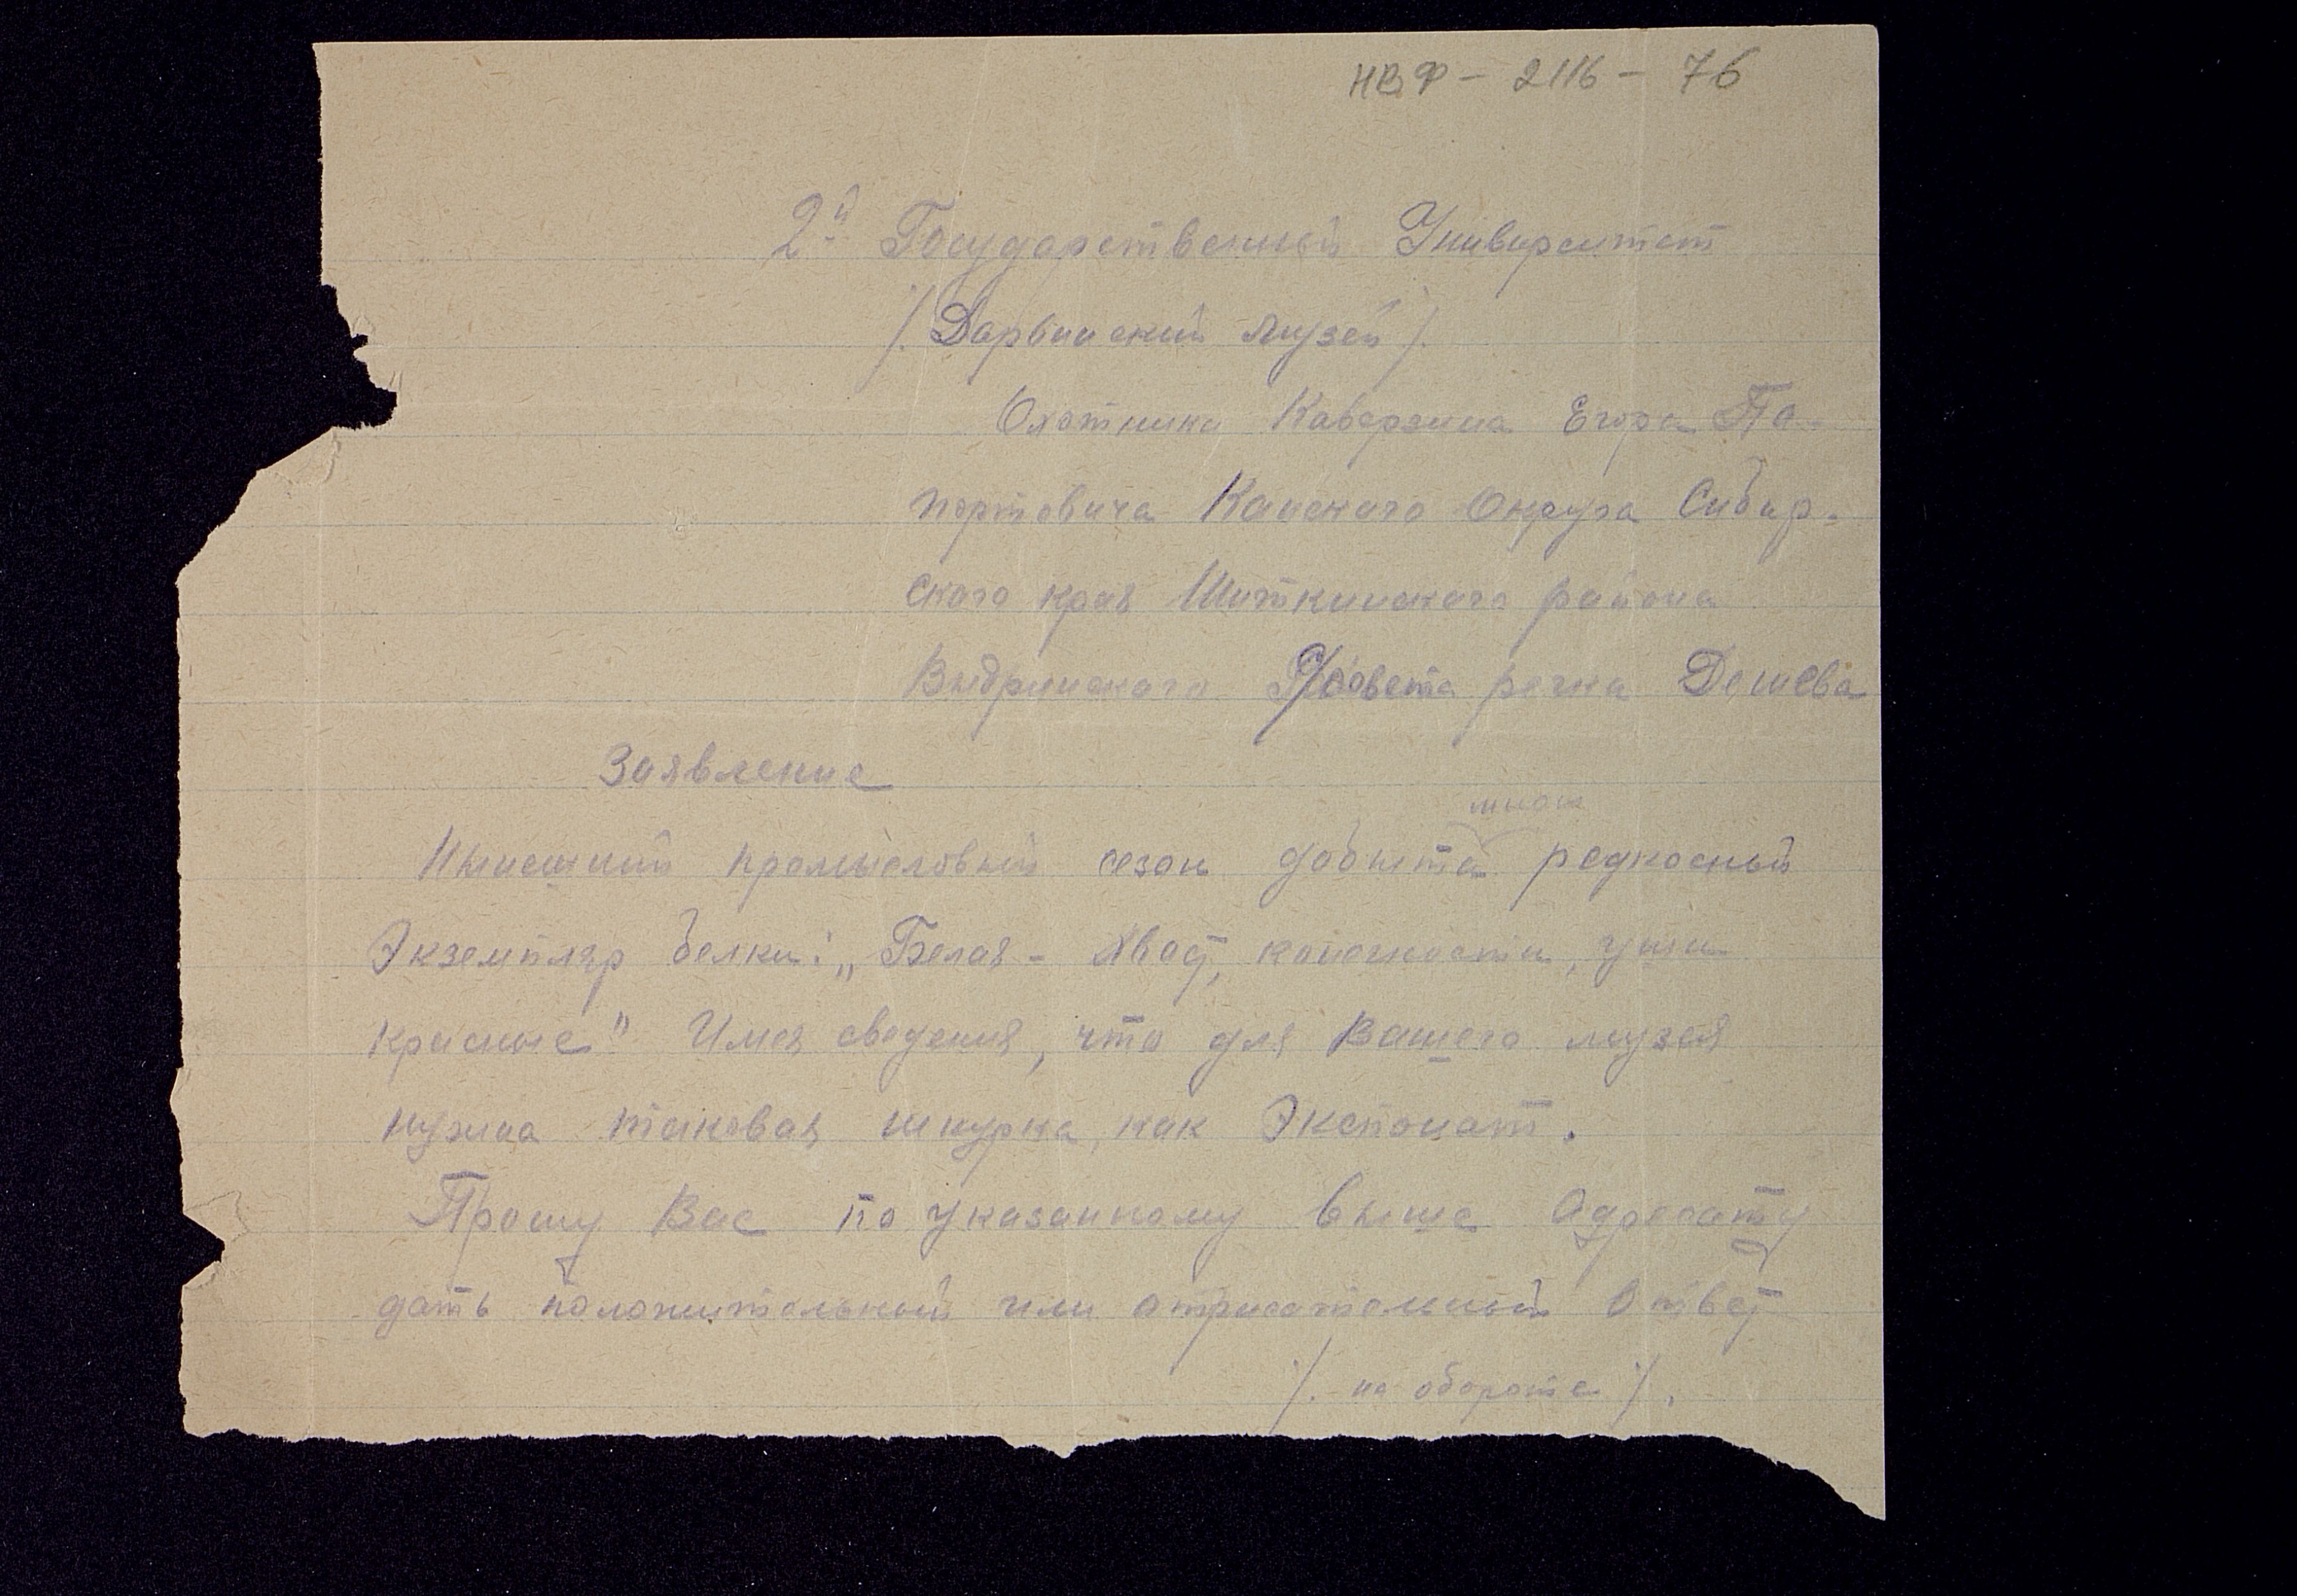 НВФ - 2116 - 76
2й Государственный Университет
/. Дарвинский музей /.
Охотника Каверзина Егора
Канского Округа Сибир-
ского края Шиткинского района
Выдринского речка Дешева
Заявление
мною
Нынешний промысловый сезон добыта редкосный
Экземпляр белки: „Белая - хвост, конечности, уши
красные" Имея сведения, что для Вашего музея
нужна таковая шкурка, как Экспонат.
Прошу Вас по указанному выше Адресату
дать положительный или отрисательный Ответ
/. на обороте /.